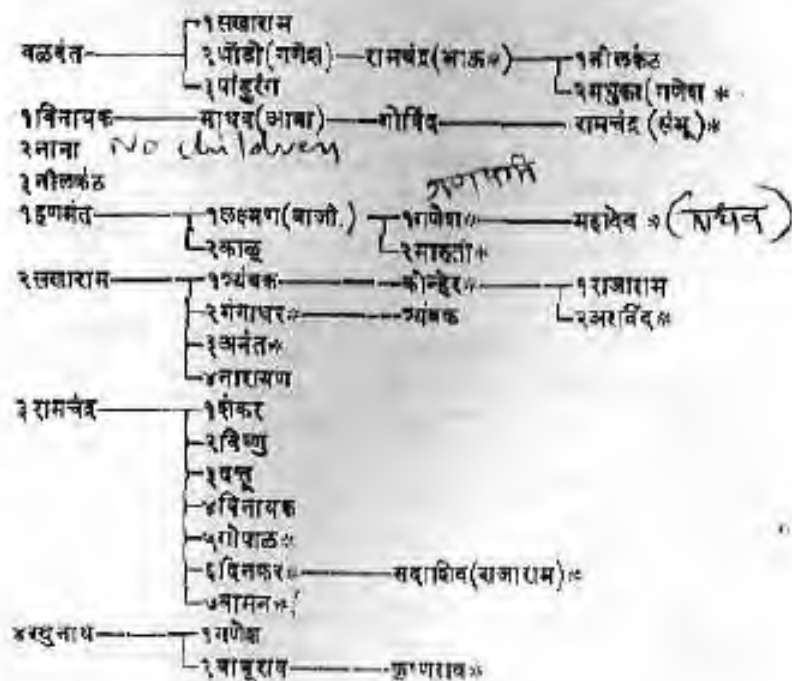 १सखाराम
बळवंत २धोंडो(गणेश) रामचंद्र(भाऊ*) १नीलकंठ
३पांडुरंग २मधुकर(गणेश *
१विनायक माधव(आबा) गोविंद रामचंद्र (शंभू)*
२नाना No children
३नीलकंठ
गणपती
१हणमंत १लक्ष्मण(बाजी.) १गणेश* महादेव *
२काळू २मारुती*
२सखाराम १त्र्यंबक कोन्हेर* १राजाराम
२गंगाधर* त्र्यंबक २अरविंद*
३अनंत*
४नारायण
३रामचंद्र १शंकर
२विष्णु
३दत्तू
४विनायक
५गोपाळ*
६दिनकर* सदाशिव(राजाराम)*
७वामन*
४रघुनाथ १गणेश
२बाबूराव कृष्णराव*